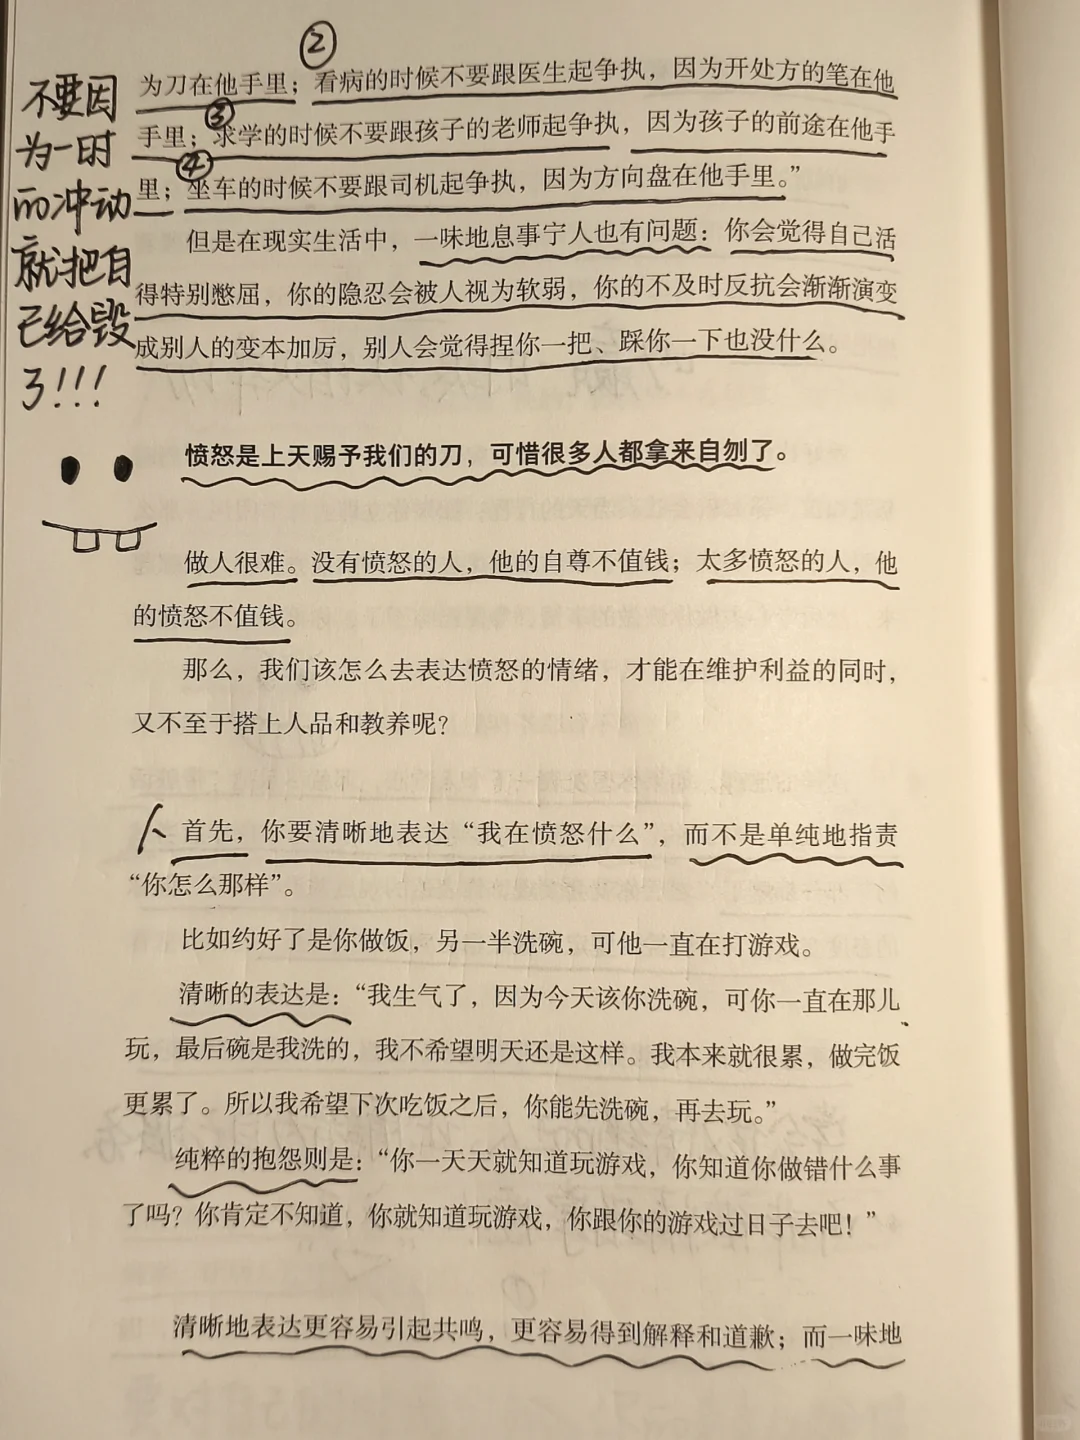 ②
为刀在他手里；看病的时候不要跟医生起争执，因为开处方的笔在他
③
手里；求学的时候不要跟孩子的老师起争执，因为孩子的前途在他手
④
里；坐车的时候不要跟司机起争执，因为方向盘在他手里。”
不要因
为一时
的冲动
就把自
己给毁
了!!!
但是在现实生活中，一味地息事宁人也有问题：你会觉得自己活
得特别憋屈，你的隐忍会被人视为软弱，你的不及时反抗会渐渐演变
成别人的变本加厉，别人会觉得捏你一把、踩你一下也没什么。
愤怒是上天赐予我们的刀，可惜很多人都拿来自刎了。
做人很难。没有愤怒的人，他的自尊不值钱；太多愤怒的人，他
的愤怒不值钱。
那么，我们该怎么去表达愤怒的情绪，才能在维护利益的同时，
又不至于搭上人品和教养呢？
首先，你要清晰地表达“我在愤怒什么”，而不是单纯地指责
“你怎么那样”。
比如约好了是你做饭，另一半洗碗，可他一直在打游戏。
清晰的表达是：“我生气了，因为今天该你洗碗，可你一直在那儿
玩，最后碗是我洗的，我不希望明天还是这样。我本来就很累，做完饭
更累了。所以我希望下次吃饭之后，你能先洗碗，再去玩。”
纯粹的抱怨则是：“你一天天就知道玩游戏，你知道你做错什么事
了吗？你肯定不知道，你就知道玩游戏，你跟你的游戏过日子去吧！”
清晰地表达更容易引起共鸣，更容易得到解释和道歉；而一味地